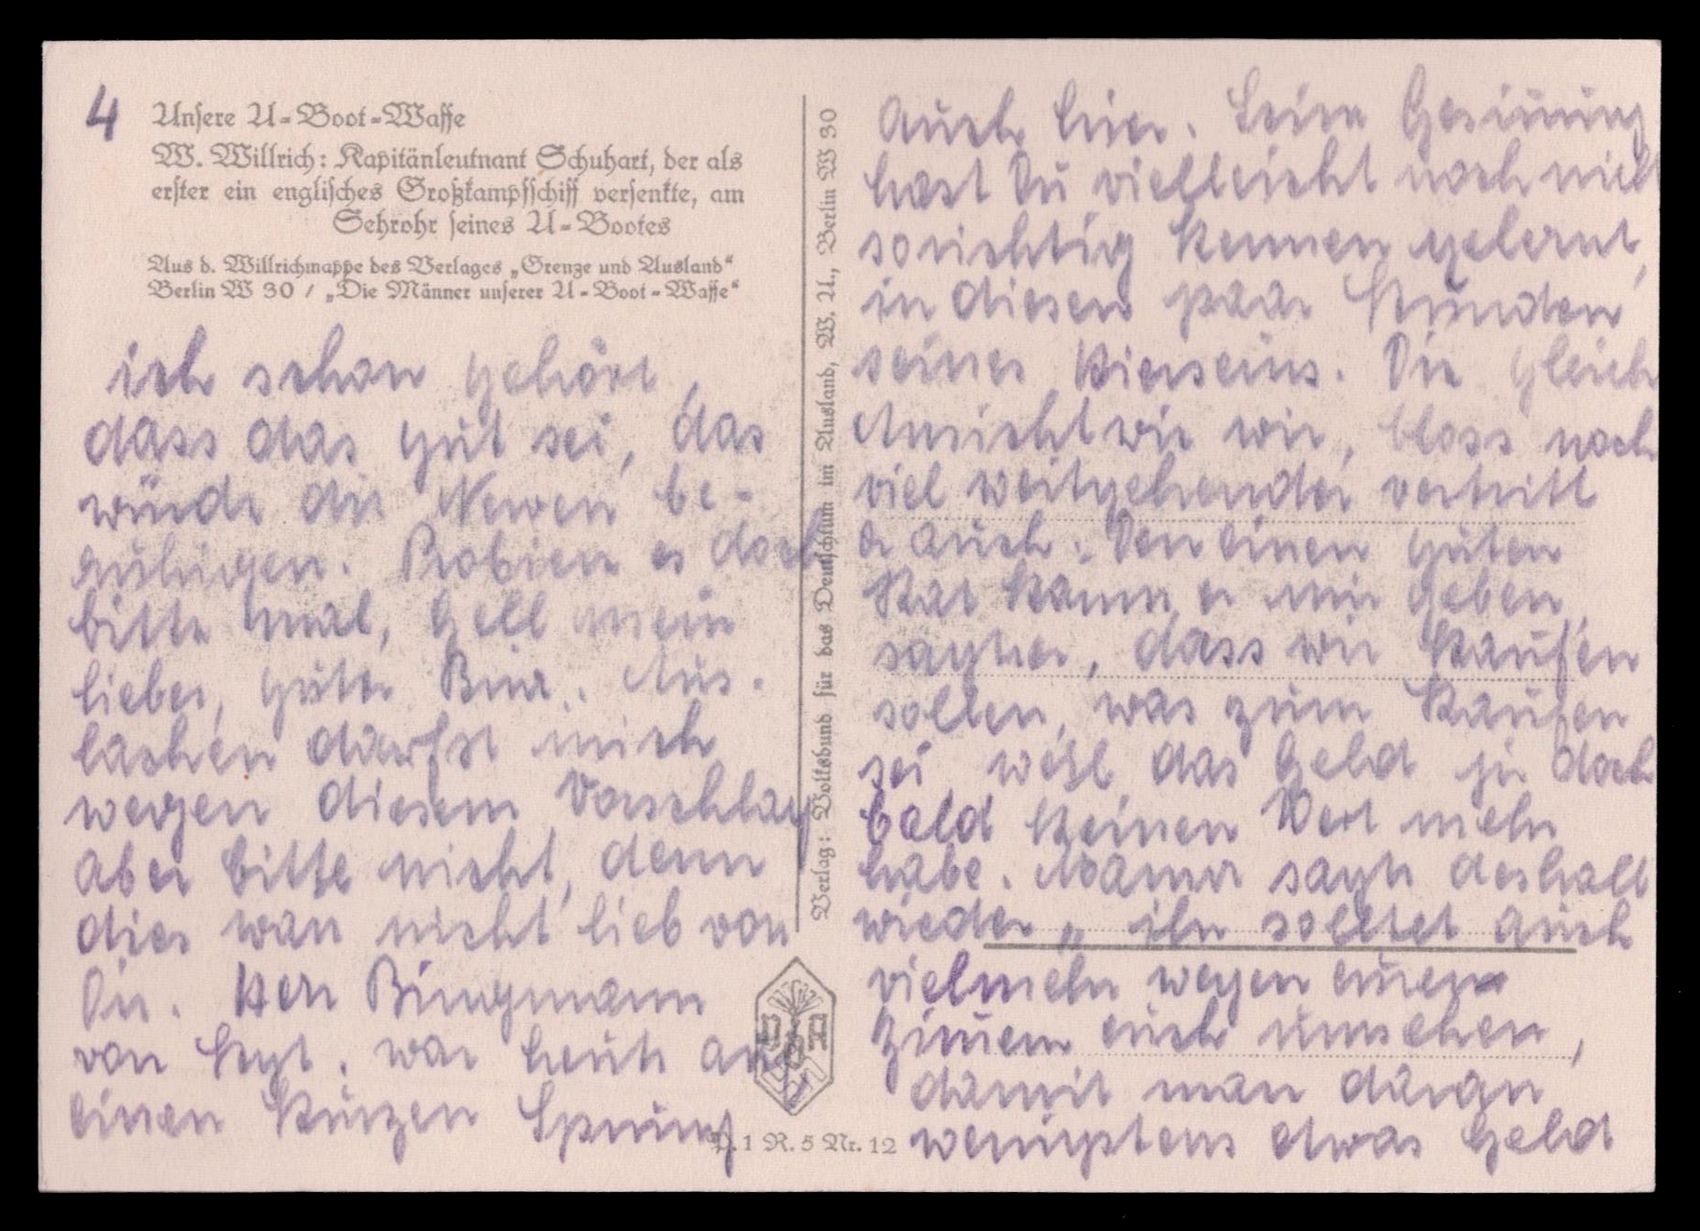 4
Unsere U-Boot-Waffe
W. Willrich: Kapitänleutnant Schuhart, der als
erster ein englisches Großkampfschiff versenkte, am
Sehrohr seines U-Bootes
Aus d. Willrichmappe des Verlages „Grenze und Ausland“
Berlin W 30 / „Die Männer unserer U-Boot-Waffe“
ich schon gehört,
dass das gut sei, das
würde die Nerven be-
ruhigen. Probiere es doch
bitte mal, gell mein
lieber, guter Aus-
lachen darfst mich
wegen diesem Vorschlag
aber bitte nicht, denn
dies wär nicht lieb von
Dir. Herr Bingmann
von war heute auf
einen kurzen Sprung
Verlag: Volksbund für das Deutschtum im Ausland, W. U., Berlin W 30
P. 1 R. 5 Nr. 12
auch hier. Seine Gesinnung
hast Du vielleicht noch nicht
so richtig kennen gelernt,
in diesen paar Stunden
seines Hierseins. Die gleiche
Ansicht wie wir, bloss noch
viel weitgehender vertritt
er auch. Den einen guten
Rat kann er mir geben,
sagte er, dass wir kaufen
sollen, was zum kaufen
sei weil das Geld ja doch
bald keinen Wert mehr
habe. Mama sagte deshalb
wieder „ ihr solltet auch
vielmehr wegen einem
Zimmer euch umsehen,
damit man daran
wenigstens etwas Geld